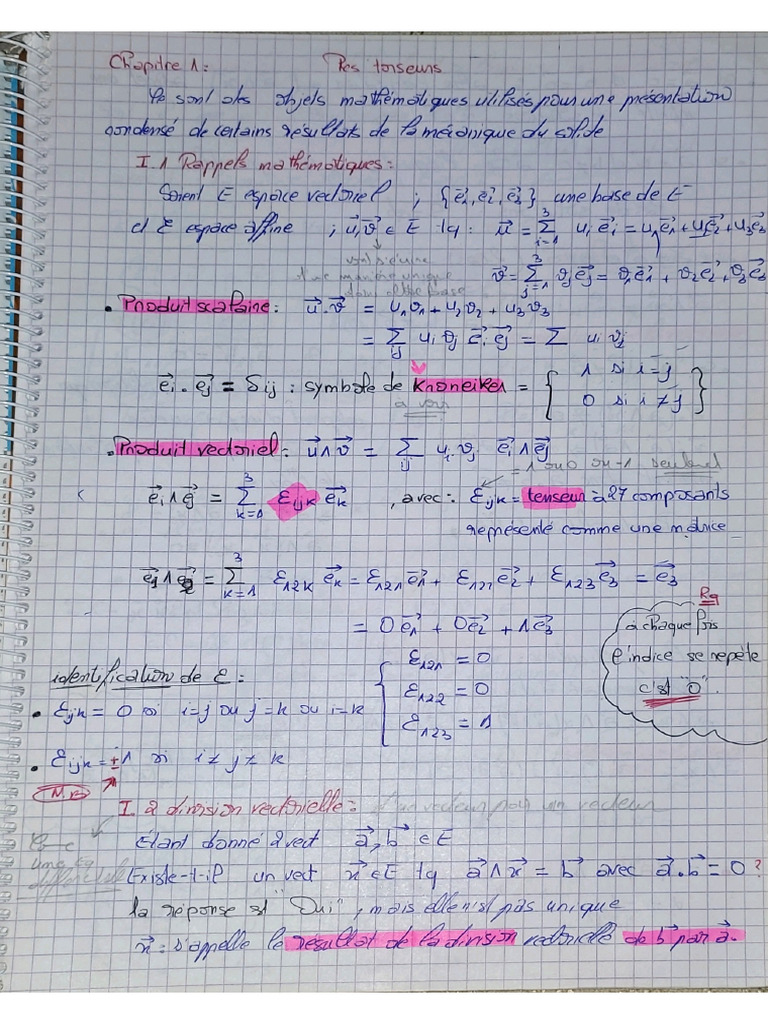 Chapitre 1: Les torseurs
Ce sont des objets mathématiques utilisés pour une présentation
condensé de certains résultats de la mécanique du solide
I.1 Rappels mathématiques:
Soient E espace vectoriel ; {e⃗1, e⃗2, e⃗3} une base de E
et E espace affine ; u⃗,v⃗ ∈ E tq: u⃗ = ∑(i=1→3) ui e⃗i = u1e⃗1 + u2e⃗2 + u3e⃗3
d'une manière unique
dans cette base
v⃗ = ∑(j=1→3) vj e⃗j = v1e⃗1 + v2e⃗2 + v3e⃗3
• Produit scalaire: u⃗.v⃗ = u1v1 + u2v2 + u3v3
= ∑ij ui vj e⃗i e⃗j = ∑ ui vj
e⃗i . e⃗j = δij : symbole de Kroneiker = { 1 si i=j
0 si i≠j }
à voir
• Produit vectoriel: u⃗∧v⃗ = ∑ij ui vj e⃗i ∧ e⃗j
= 1 ou 0 ou -1 seulement
e⃗i ∧ e⃗j = ∑(k=1→3) εijk e⃗k , avec: εijk = tenseur à 27 composants
représenté comme une matrice
e⃗1 ∧ e⃗2 = ∑(k=1→3) ε12k e⃗k = ε121 e⃗1 + ε122 e⃗2 + ε123 e⃗3 = e⃗3
= 0e⃗1 + 0e⃗2 + 1e⃗3
Rq
à chaque fois
l'indice se repète
c'est "0".
identification de ε:
ε121 = 0
ε122 = 0
ε123 = 1
• εijk = 0 si i=j ou j=k ou i=k
• εijk = ±1 si i≠j≠k
N.B
I.2 division vectorielle: d'un vecteur par un vecteur
une eq
Étant donné 2 vect a⃗, b⃗ ∈ E
Existe-t-il un vect x⃗ ∈ E tq a⃗∧x⃗ = b⃗ avec a⃗.b⃗ = 0 ?
la réponse est "Oui", mais elle n'est pas unique
x⃗: s'appelle le résultat de la division vectorielle de b⃗ par a⃗.